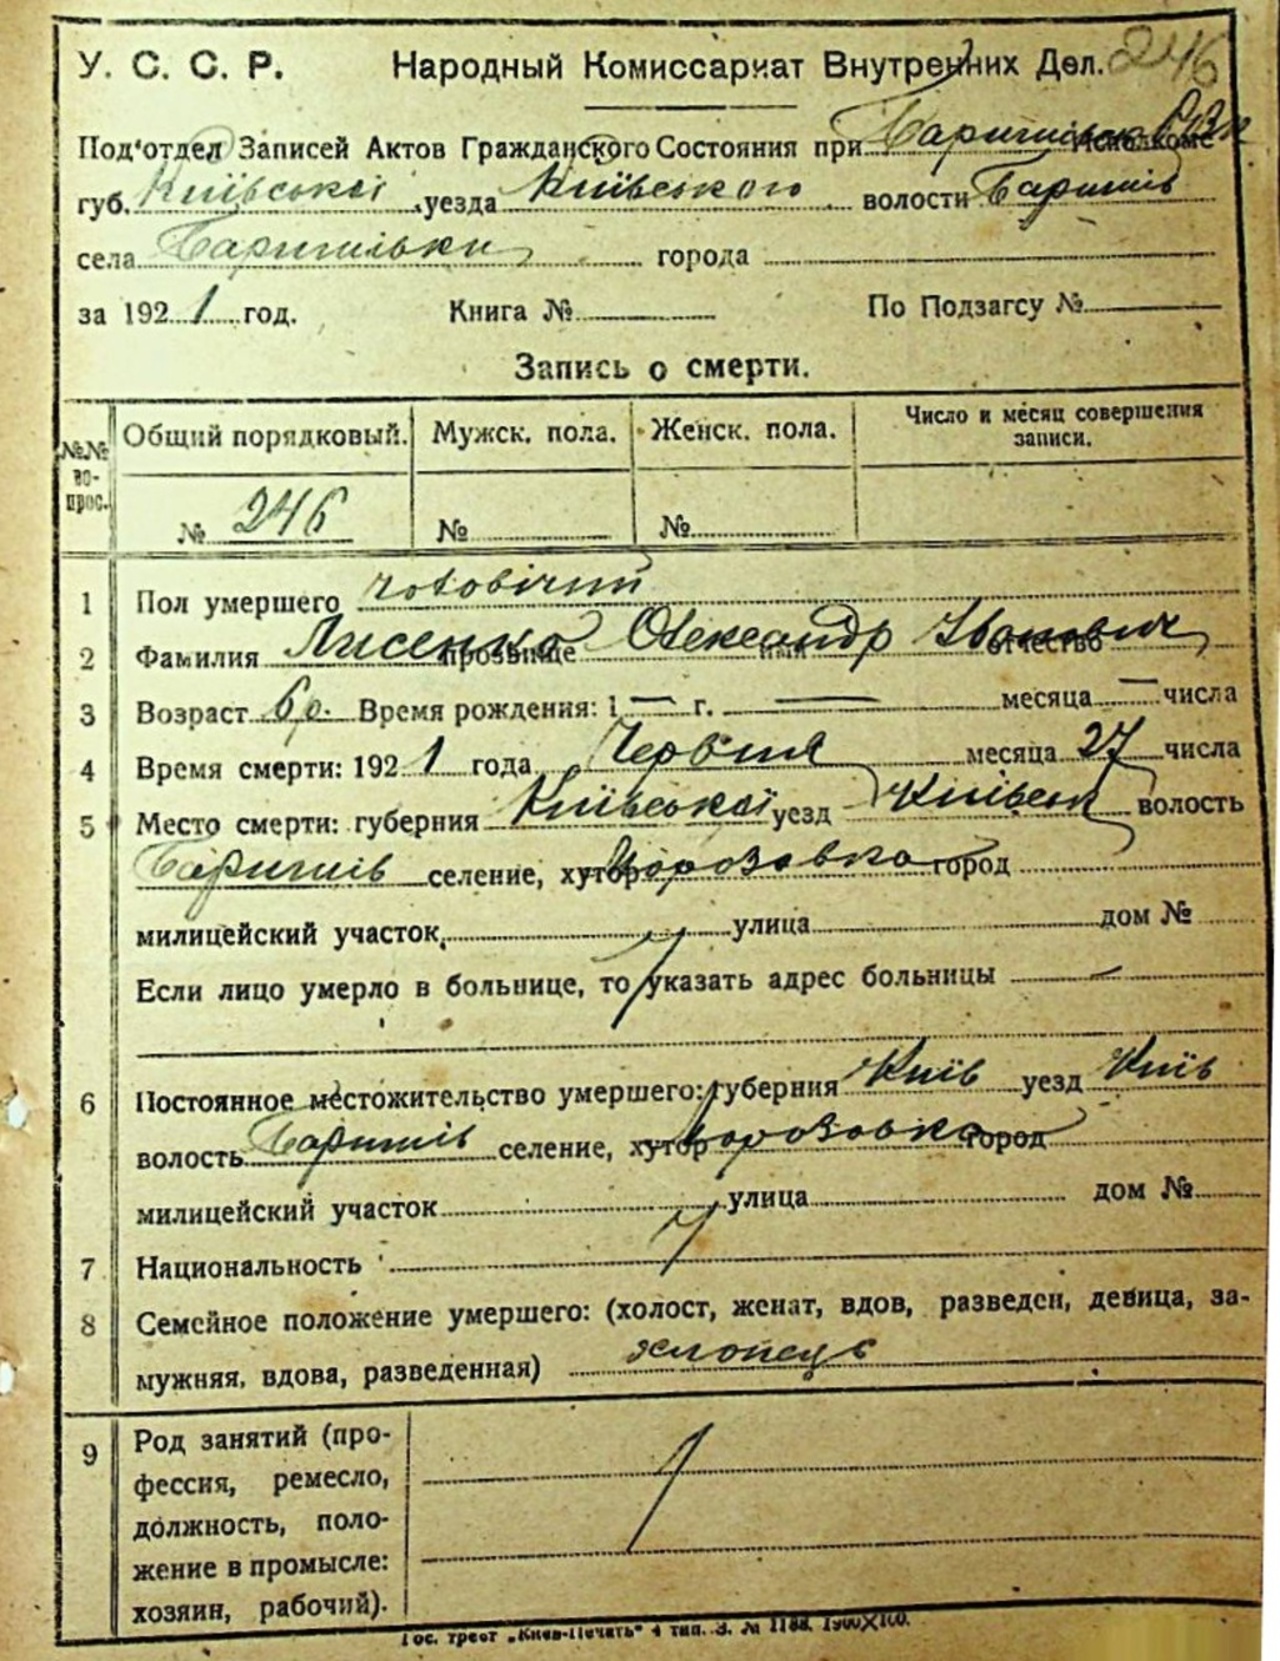 У. С. С. Р. Народный Комиссариат Внутренних Дел. 246
Под'отдел Записей Актов Гражданского Состояния при Исполкоме
губ. Київської уезда Київського волости Баришів
села Баришівки города
за 1921 год. Книга № По Подзагсу №
Запись о смерти.
№№ вопрос. Общий порядковый. Мужск. пола. Женск. пола. Число и месяц совершения записи.
№ 246 № №
1 Пол умершего чоловічий
2 Фамилия Лисенко прозвище Олександр имя Іванович отчество
3 Возраст 6 р. Время рождения: 1 — г. — месяца — числа
4 Время смерти: 1921 года Червня месяца 27 числа
5 Место смерти: губерния Київської уезд Київськ волость
Баришів селение, хутор Морозовка город
милицейский участок, улица дом №
Если лицо умерло в больнице, то указать адрес больницы —
6 Постоянное местожительство умершего: губерния Київ уезд Київ
волость Баришів селение, хутор Морозовка город
милицейский участок улица дом №
7 Национальность
8 Семейное положение умершего: (холост, женат, вдов, разведен, девица, за-
мужняя, вдова, разведенная) хлопець
9 Род занятий (про-
фессия, ремесло,
должность, поло-
жение в промысле:
хозяин, рабочий).
Гос. трест „Киев-Печать“ 4 тип. З. № 1188. 1900X100.